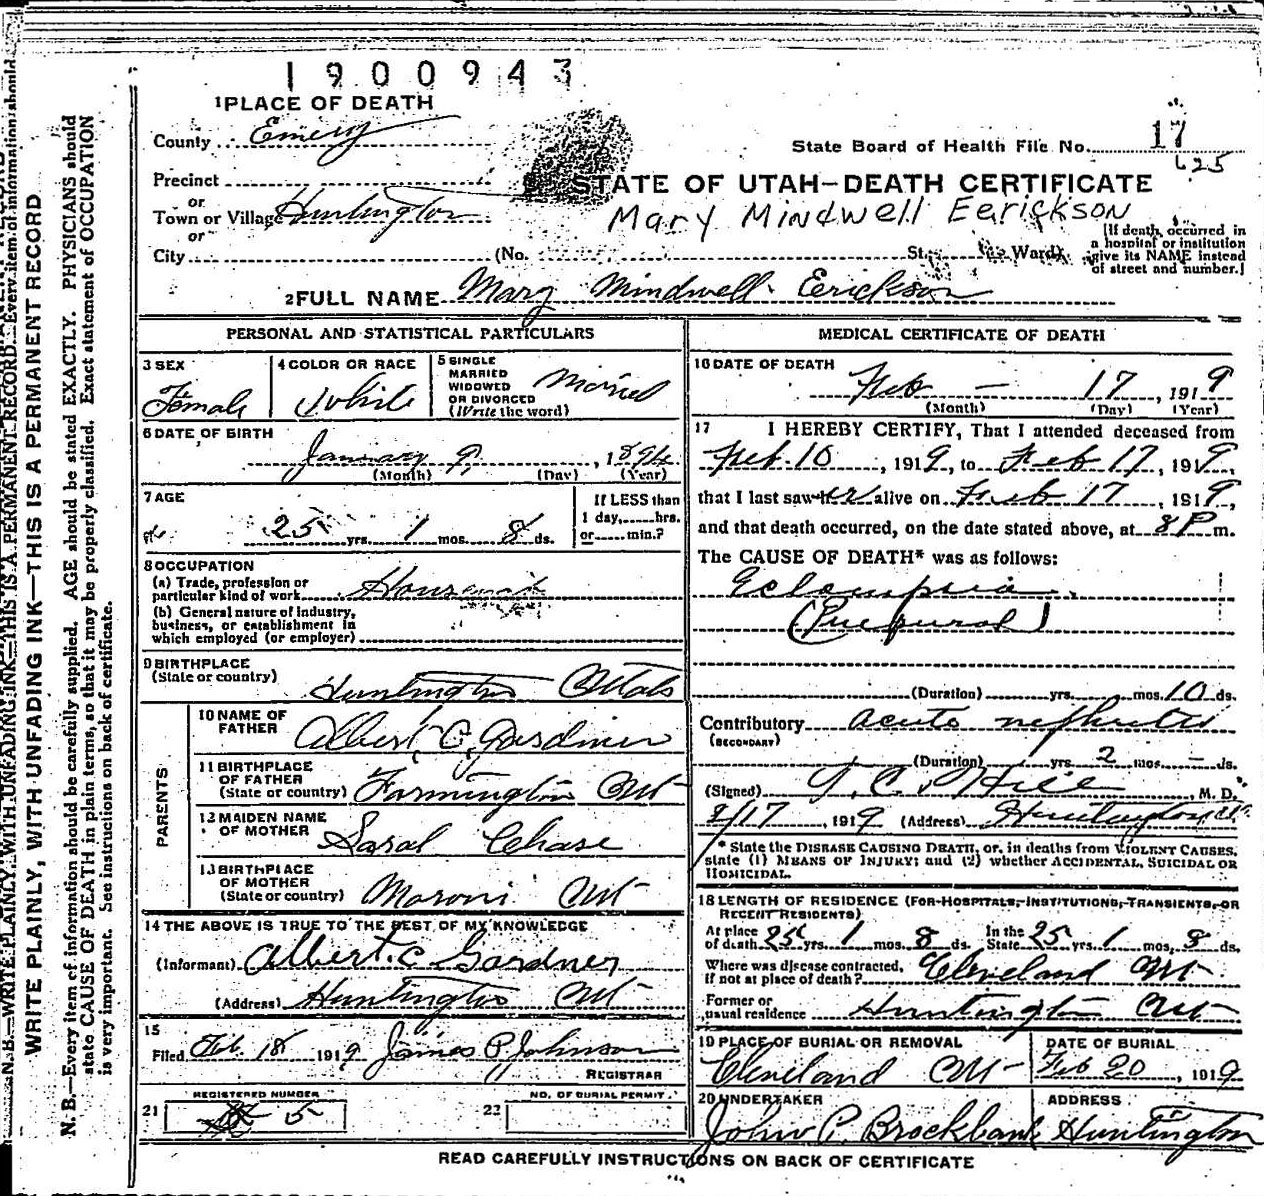 1900943
1 PLACE OF DEATH
County Emery
State Board of Health File No. 17
625
Precinct
or
Town or Village Huntington
or
City (No. St.; Ward)
STATE OF UTAH—DEATH CERTIFICATE
Mary Mindwell Eerickson
[If death occurred in
a hospital or institution
give its NAME instead
of street and number.]
2 FULL NAME Mary Mindwell Eerickson
PERSONAL AND STATISTICAL PARTICULARS
3 SEX
Female
4 COLOR OR RACE
White
5 SINGLE
MARRIED
WIDOWED
OR DIVORCED
(Write the word)
Married
6 DATE OF BIRTH
January 9, 1894
(Month) (Day) (Year)
7 AGE
25 yrs. 1 mos. 8 ds.
If LESS than
1 day, hrs.
or min.?
8 OCCUPATION
(a) Trade, profession or
particular kind of work
(b) General nature of industry,
business, or establishment in
which employed (or employer)
9 BIRTHPLACE
(State or country)
Huntington Utah
PARENTS
10 NAME OF
FATHER
Albert C. Gardner
11 BIRTHPLACE
OF FATHER
(State or country) Farmington Ut
12 MAIDEN NAME
OF MOTHER
Sarah Chase
13 BIRTHPLACE
OF MOTHER
(State or country) Moroni Ut
14 THE ABOVE IS TRUE TO THE BEST OF MY KNOWLEDGE
(Informant) Albert C Gardner
(Address) Huntington Ut
15
Filed Feb. 18 1919 James P Johnson
REGISTRAR
REGISTERED NUMBER
21 5
NO. OF BURIAL PERMIT
22
MEDICAL CERTIFICATE OF DEATH
16 DATE OF DEATH
Feb — 17, 1919
(Month) (Day) (Year)
17 I HEREBY CERTIFY, That I attended deceased from
Feb. 10, 1919, to Feb 17, 1919,
that I last saw her alive on Feb 17, 1919,
and that death occurred, on the date stated above, at 8 P m.
The CAUSE OF DEATH* was as follows:
Eclampsia
(Puepural)
(Duration) yrs. mos. 10 ds.
Contributory acute nephritis
(SECONDARY)
(Duration) yrs. 2 mos. — ds.
(Signed) Hill, M. D.
2/17, 1919 (Address) Huntington Ut.
* State the DISEASE CAUSING DEATH, or, in deaths from VIOLENT CAUSES,
state (1) MEANS OF INJURY; and (2) whether ACCIDENTAL, SUICIDAL OR
HOMICIDAL.
18 LENGTH OF RESIDENCE (FOR HOSPITALS, INSTITUTIONS, TRANSIENTS, OR
RECENT RESIDENTS)
At place
of death 25 yrs. 1 mos. 8 ds. In the
State 25 yrs. 1 mos. 8 ds.
Where was disease contracted,
if not at place of death? Cleveland Ut
Former or
usual residence Huntington Ut
19 PLACE OF BURIAL OR REMOVAL
Cleveland Ut
DATE OF BURIAL
Feb 20, 1919
20 UNDERTAKER
John P. Brockbank
ADDRESS
Huntington
READ CAREFULLY INSTRUCTIONS ON BACK OF CERTIFICATE
WRITE PLAINLY, WITH UNFADING INK—THIS IS A PERMANENT RECORD
N. B.—Every item of information should be carefully supplied. AGE should be stated EXACTLY. PHYSICIANS should
state CAUSE OF DEATH in plain terms, so that it may be properly classified. Exact statement of OCCUPATION
is very important. See instructions on back of certificate.